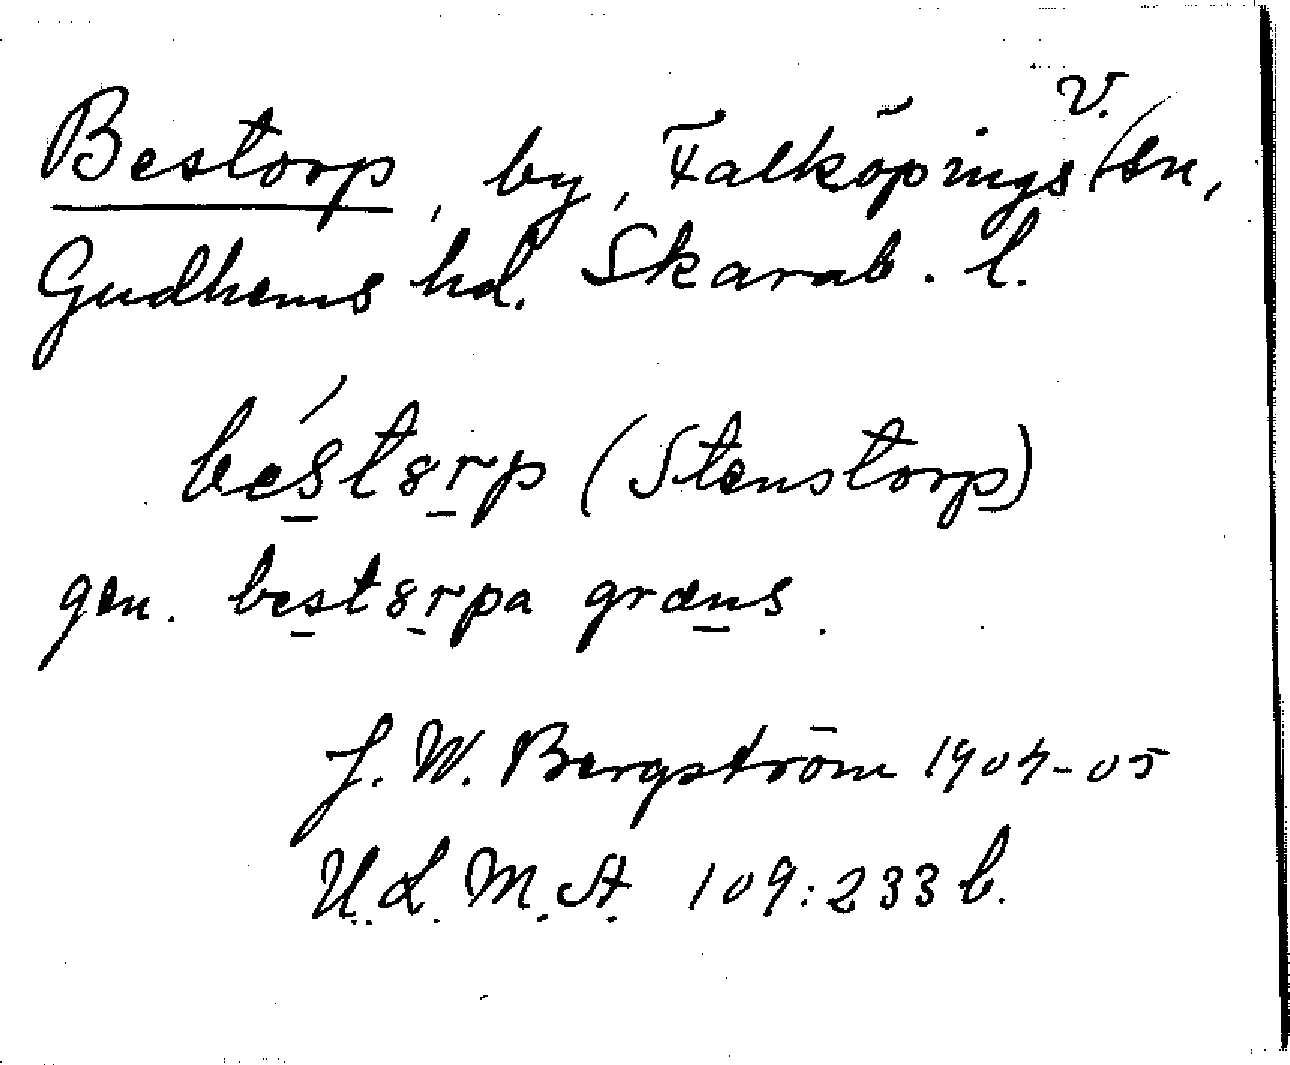 Bestorp, by, Falköpings V. sn,
Gudhems hd. Skarab. l.
béstɞrp (Stenstorp)
gen. bestɞrpa græns.
J. W. Bergström 1904-05
U.L.M.A. 109:233 b.